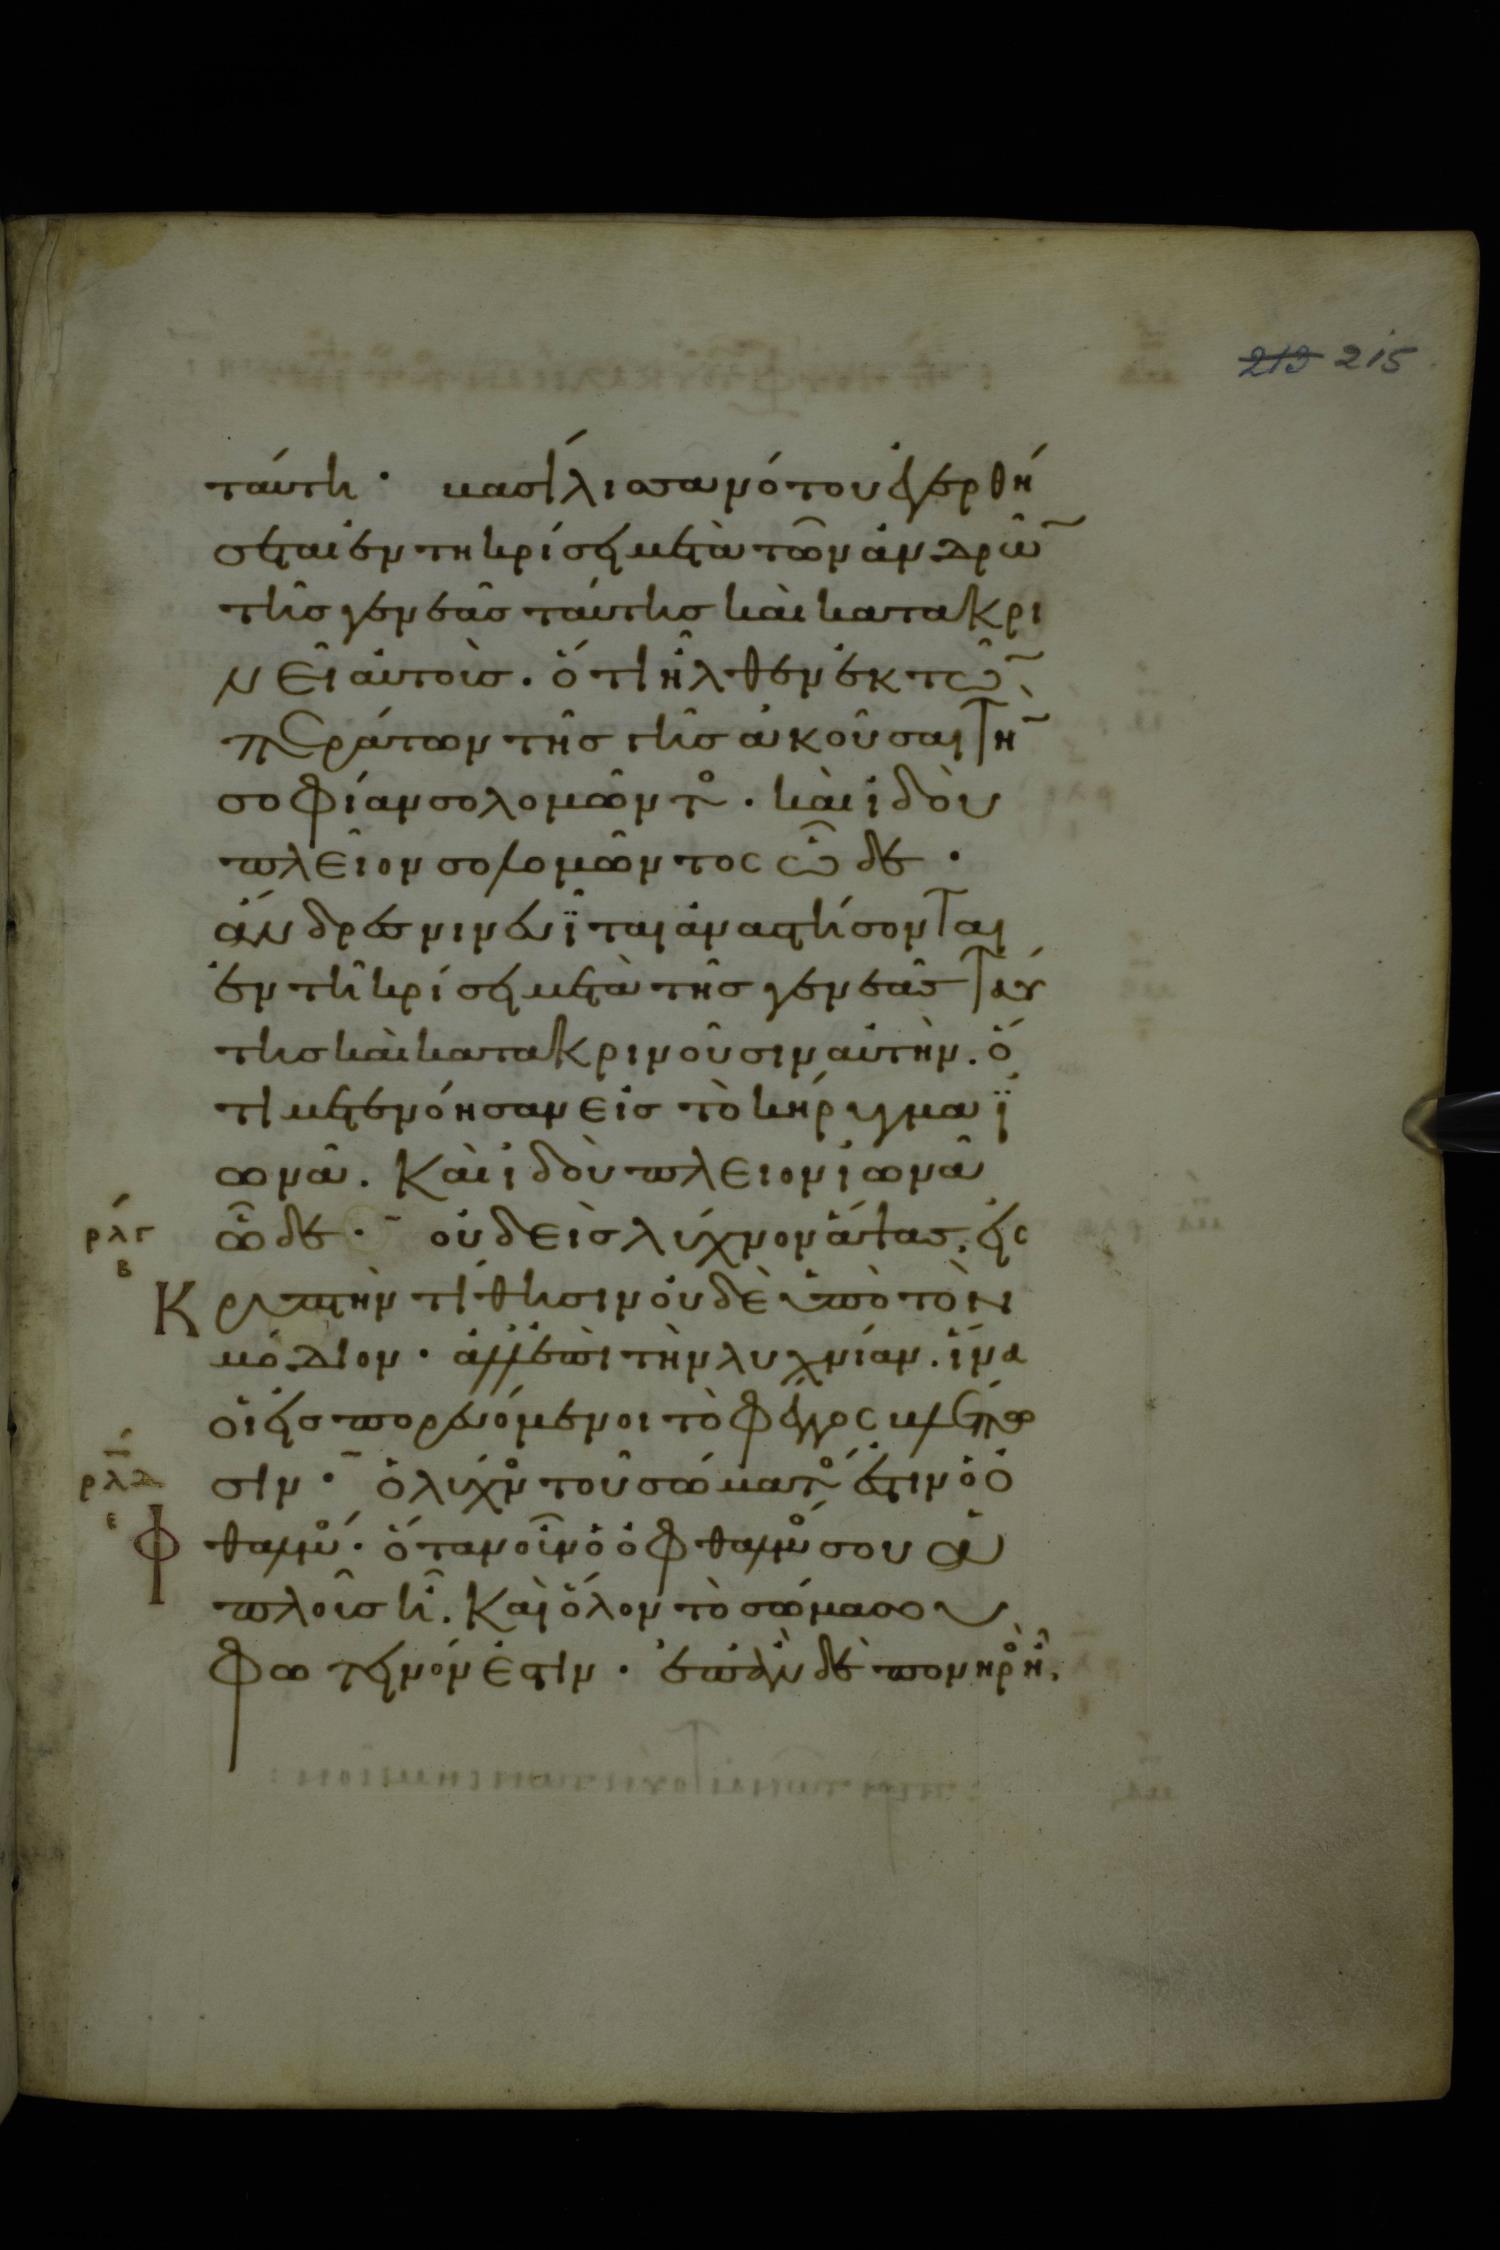 213 215
ταύτη· βασίλισσα νότου ἐγερθή
σεται ἐν τῆ κρίσει μετὰ τῶν ἀνδρῶ̅
τῆσ γενεᾶσ ταύτησ καὶ κατακρι
νεῖ αὐτοὺσ. ὅτι ἦλθεν ἐκ τῶ̅
περάτων τῆσ γῆσ ἀκοῦσαι τὴ̅
σοφίαν σολομῶντο. καὶ ἰδοὺ
πλεῖον σολομῶντος ὧδε·
ἄνδρεσ νινευϊται ἀναστήσονται
ἐν τῆ κρίσει μετὰ τῆσ γενεᾶσ ταύ
τησ καὶ κατακρινοῦσιν αὐτὴν. ὅ
τι μετενόησαν εἰσ τὸ κήρυγμα ϊ
ωνᾶ. Καὶ ἰδοὺ πλειον ἰωνᾶ
ρλγ β
ὧδε· οὐδεὶσ λύχνον ἅψασ, εἰς
Κρυπτὴν τίθησιν οὐδὲ ὑπὸ τὸν
μόδιον· ἀλλ' ἐπὶ τὴν λυχνίαν. ἵνα
οἱ εἰσπορευόμενοι τὸ φέγγος βλέπω
ρλδ ε
σιν· ὁ λύχνο τοῦ σώματο ἐστιν ὁ ὀ
Φθαλμό· ὅταν οὖν ὁ ὀφθαλμό σου ἁ
πλοῦσ ἦ. Καὶ ὅλον τὸ σῶμα σου
φωτεινόν ἐστιν· ἐπὰν δὲ πονηρὸ ἦ.